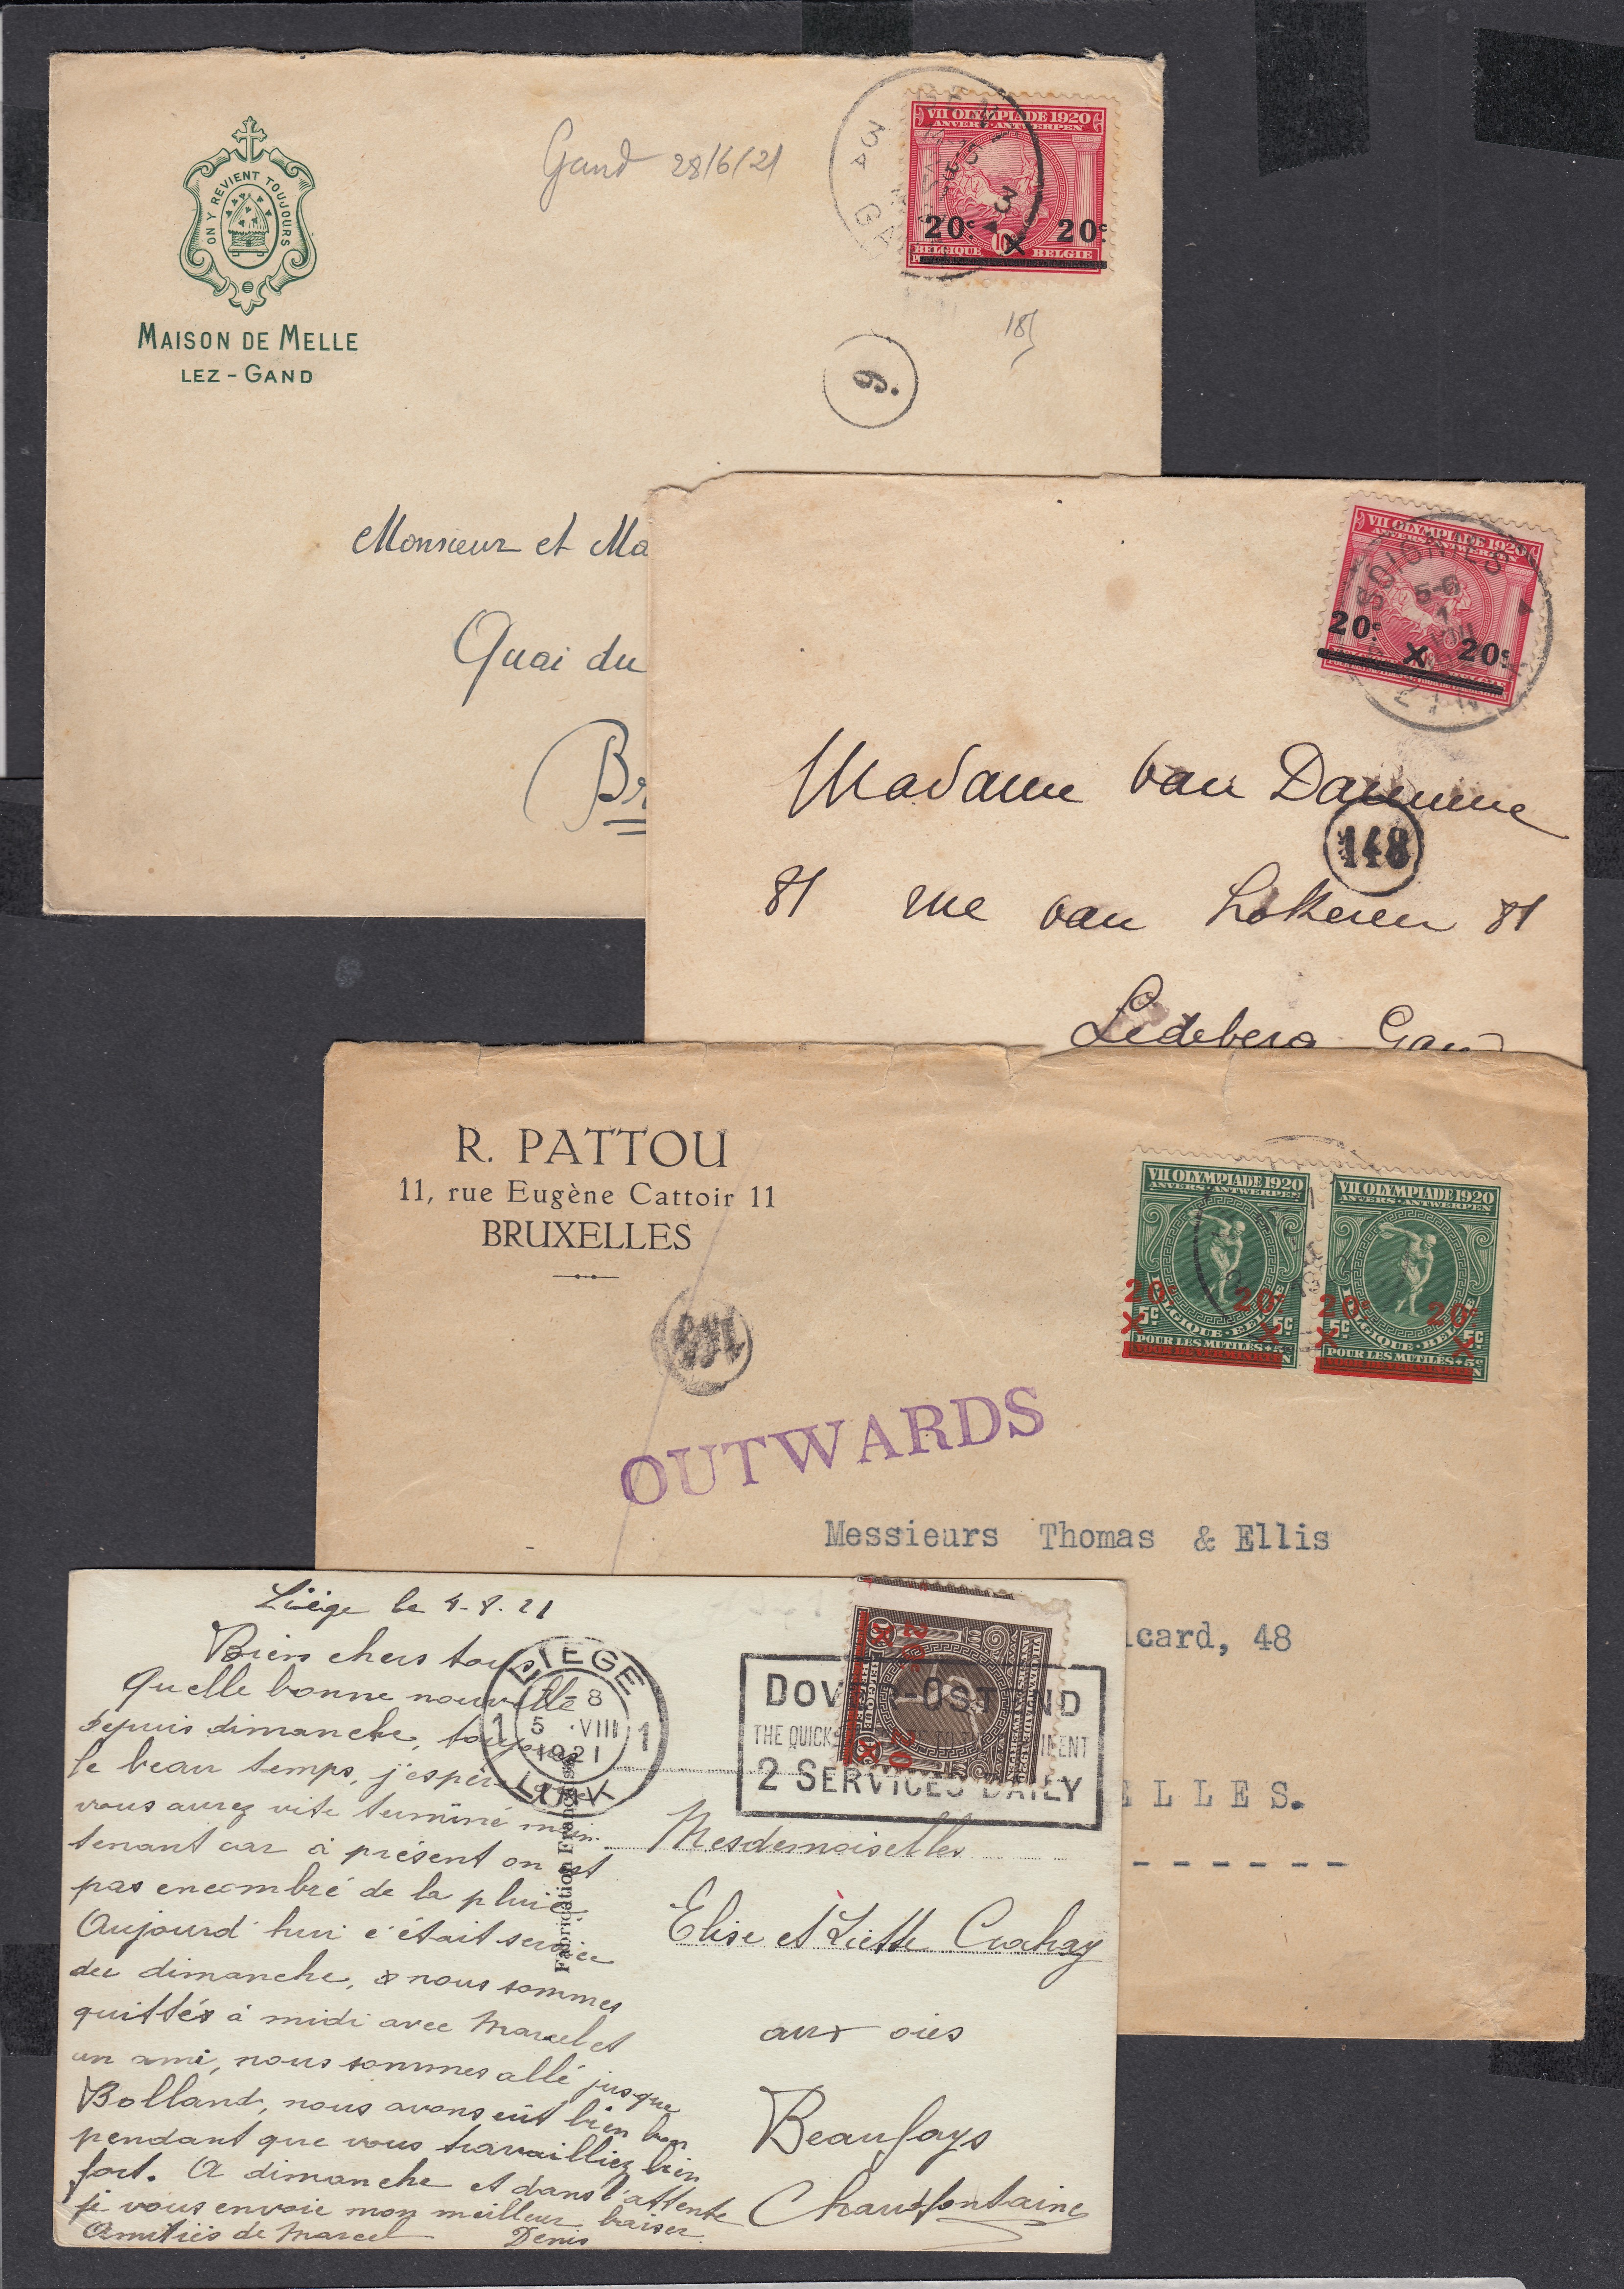 ON Y REVIENT TOUJOURS
MAISON DE MELLE
LEZ - GAND
Gand 28/6/21
3
A
GA
3
VII OLYMPIADE 1920
ANVERS - ANTWERPEN
20c 20c
BELGIQUE 10 BELGIE
185
6.
Monsieur et Ma
Quai du
Br
VII OLYMPIADE 1920
ANVERS-ANTWERPEN
SOIGNIES
5-6
1
VIII
20c 20c
Madame van Damme
148
81 rue van Lokeren 81
Ledeberg Gand
R. PATTOU
11, rue Eugène Cattoir 11
BRUXELLES
VII OLYMPIADE 1920
ANVERS-ANTWERPEN
20c 20c
5c 5c
BELGIQUE·BELGIE
POUR LES MUTILÉS+5c
VII OLYMPIADE 1920
ANVERS-ANTWERPEN
20c 20c
5c 5c
BELGIQUE·BELGIE
POUR LES MUTILÉS+5c
OUTWARDS
Messieurs Thomas & Ellis
icard, 48
ELLES.
------
Liège le 4-8.21
Biens chers tous
Quelle bonne nouvelle
depuis dimanche, toujours
le beau temps, j'espère
vous aurez vite terminé main-
tenant car à présent on est
pas encombré de la pluie
Aujourd'hui c'était service
du dimanche, & nous sommes
quittés à midi avec Marcel et
un ami, nous sommes allé jusque
Bolland, nous avons eût bien bon
pendant que vous travailliez bien
fort. A dimanche et dans l'attente
je vous envoie mon meilleur baiser.
Amitiés de Marcel Denis
LIEGE
7-8
1 5 ·VIII 1
1921
LUIK
Fabrication Française
VII OLYMPIADE 1920
ANVERS-ANTWERPEN
20c 20
DOVER-OSTEND
THE QUICKEST ROUTE TO THE CONTINENT
2 SERVICES DAILY
Mesdemoiselles
Elise et Liette Crahay
aux oies
Beaufays
Chaudfontaine